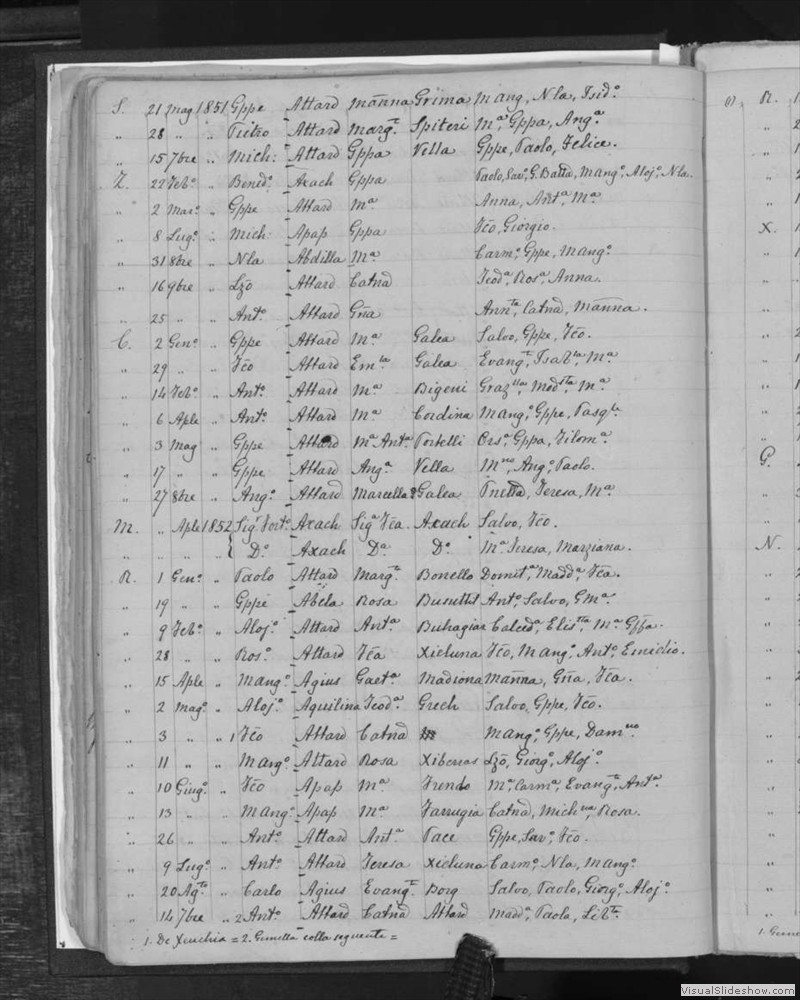 S. 21 Mag 1851 Gppe Attard Mãnna Grima Mang, Nla, Isid.º
„ 28 „ „ Pietro Attard Marg.ᵗ Spiteri M.ª, Gppa, Ang.ª
„ 15 7bre „ Mich: Attard Gppa Vella Gppe, Paolo, Felice.
Z. 22 Feb.º „ Bened.º Axach Gppa Paolo, Sav.º, G. Batta, Mang.º, Aloj.º, Nla.
„ 2 Mar.º „ Gppe Attard M.ª Anna, Ant.ª, M.ª
„ 8 Lug.º „ Mich Apap Gppa Fcõ, Giorgio.
„ 31 8bre „ Nla Abdilla M.ª Carm.º, Gppe, Mang.º
„ 16 9bre „ Lzõ Attard Catnã Teod.ª, Ros.ª, Anna.
„ 25 „ „ Ant.º Attard Gña Ann.ᵗᵃ, Catnã, Mãnna.
C. 2 Gen.º „ Gppe Attard M.ª Galea Salvo, Gppe, Fcõ.
„ 29 „ „ Fcõ Attard Em.ˡᵃ Galea Evang.ᵗ, Isab.ˡᵃ, M.ª
„ 14 Feb.º „ Ant.º Attard M.ª Bigeni Graz.ˡˡᵃ, Mod.ˢᵗᵃ, M.ª
„ 6 Aple „ Ant.º Attard M.ª Cordina Mang.º, Gppe, Pasq.ˡᵃ
„ 3 Mag „ Gppe Attard M.ª Ant.ª Portelli Ors.ª, Gppa, Filom.ª
„ 17 „ „ Gppe Attard Ang.ª Vella Ang.º, Paolo.
„ 27 8bre „ Ang.º Attard Marcella Galea Teresa, M.ª
M. „ Aple 1852 Sig.ʳ Fort.º Axach Sig.ª Fca. Axach Salvo, Fcõ.
„ „ „ „ { D.º Axach D.ª D.º M.ª Teresa, Marziana.
R. 1 Gen.º „ Paolo Attard Marg.ᵗ Bonello Domit.ª, Madd.ª, Fca.
„ 19 „ „ Gppe Abela Rosa Busuttil Ant.º, Salvo, Gm.ª
„ 9 Feb.º „ Aloj.º Attard Ant.ª Buhagiar Calced.ª, Elis.ᵗᵗᵃ, M.ª
„ 28 „ „ Ros.º Attard Fca Xicluna Fcõ, Mang.º, Ant.º, Emidio.
„ 15 Aple „ Mang.º Agius Gaet.ª Madiona Mãnna, Gña, Fca.
„ 2 Mag.º „ Aloj.º Aquilina Teod.ª Grech Salvo, Gppe, Fcõ.
„ 3 „ „ 1 Fcõ Attard Catnã Mang.º, Gppe, Dam.ⁿᵒ
„ 11 „ „ Marg.º Attard Rosa Xiberras Lzõ, Giorg.º, Aloj.º
„ 10 Giug.º „ Fcõ Apap M.ª Trendo M.ª Carm.ª, Evang.ᵗ, Ant.ª
„ 13 „ „ Mang.º Apap M.ª Farrugia Catnã, Mich.ⁿᵃ, Rosa.
„ 26 „ „ Ant.º Attard Ant.ª Pace Gppe, Sav.º, Fcõ.
„ 9 Lug.º „ Ant.º Attard Teresa Xicluna Carm.º, Nla, Mang.º
„ 20 Ag.ᵗᵒ „ Carlo Agius Evang.ᵗ Borg Salvo, Paolo, Giorg.º, Aloj.º
„ 14 7bre „ 2 Ant.º Attard Catnã Attard Madd.ª, Paola, Lib.ᵗᵃ
1. De Xeuchia = 2. Gemella colla seguente =
R.
X.
G.
N.
VisualSlideshow.com